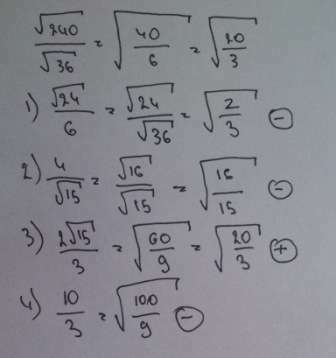 √240/√36 = √(40/6) = √(20/3)
1) √24/6 = √24/√36 = √(2/3) ⊖
2) 4/√15 = √16/√15 = √(16/15) ⊖
3) 2√15/3 = √(60/9) = √(20/3) ⊕
4) 10/3 = √(100/9) ⊖